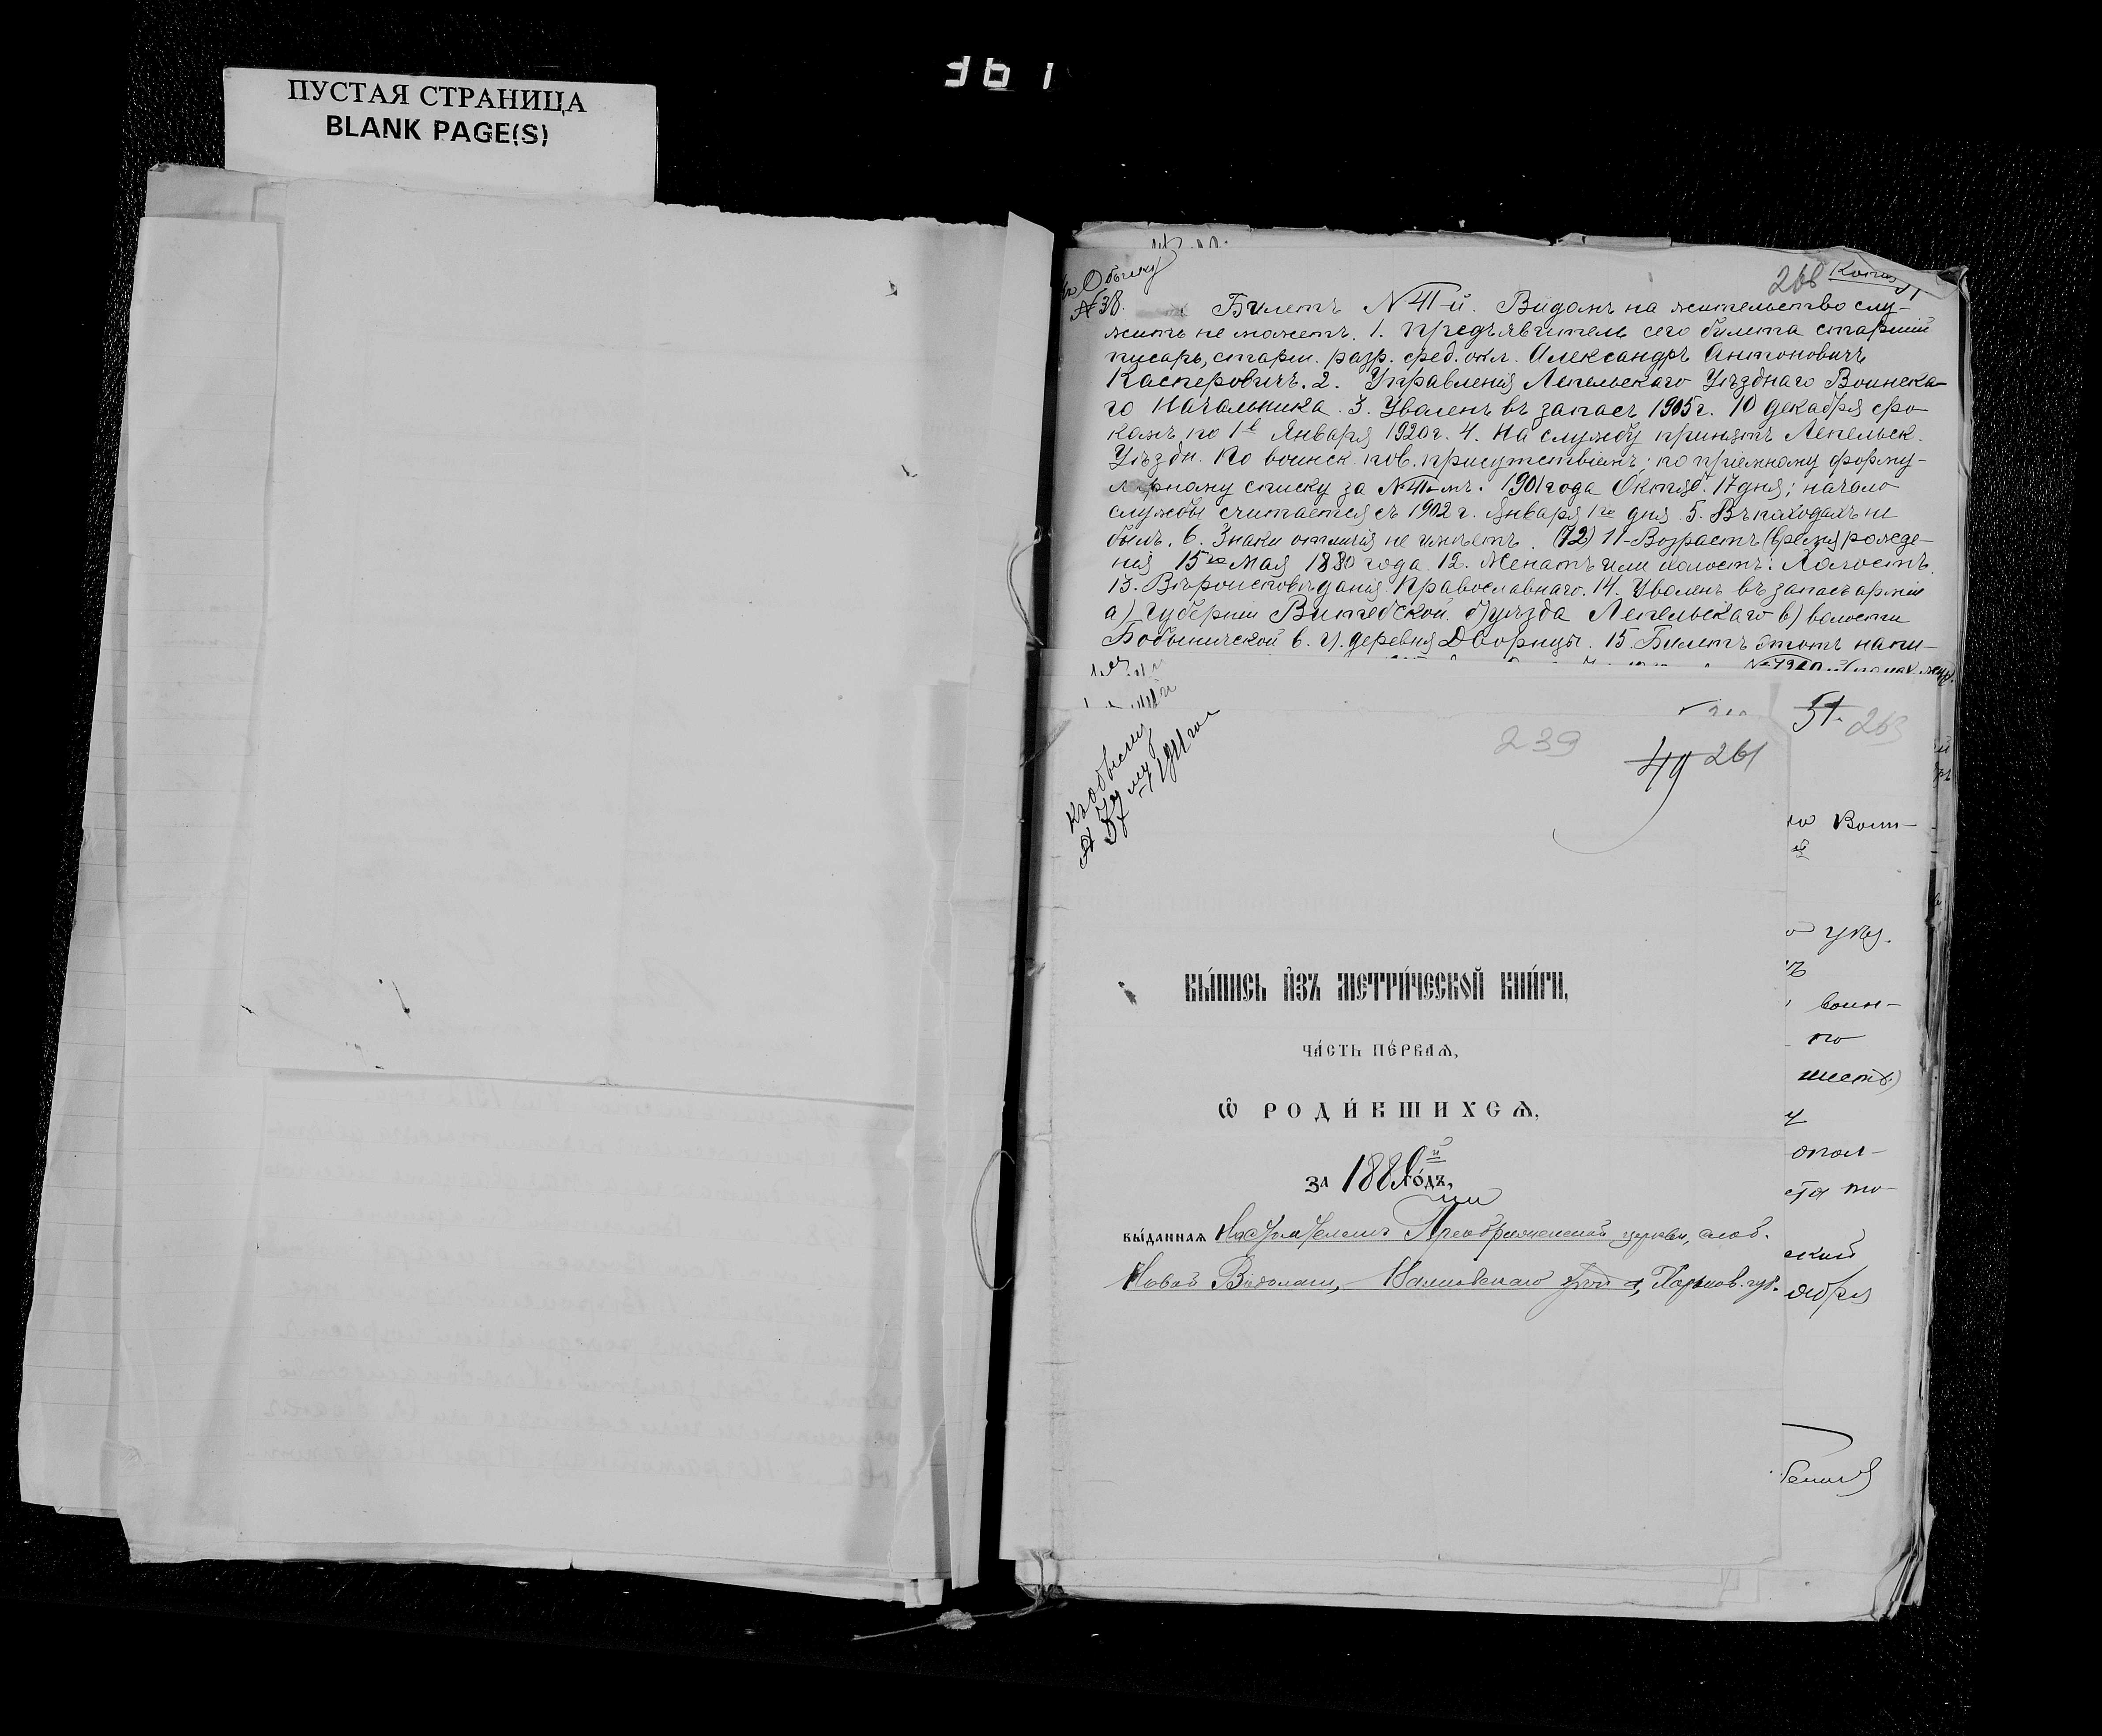 361
ПУСТАЯ СТРАНИЦА
BLANK PAGE(S)
268 Копія
№ 38.
Билетъ № 41-й. Виданъ на жительство слу-
жить не можетъ. 1. Предъявитель сего билета старшій
писарь, старш. разр. сред. окл. Александръ Антоновичъ
Касперовичъ. 2. Управленія Лепельскаго Уѣзднаго Воинска-
го Начальника. 3. Уволенъ въ запасъ 1905 г. 10 декабря сро-
комъ по 1е Января 1920 г. 4. На службу принятъ Лепельск.
Уѣздн. по воинск. пов. присутствіемъ; по пріемному форму-
лярному списку за № 41-мъ. 1901 года Октяб. 17 дня; начало
службы считается съ 1902 г. Января 1го дня. 5. Въ походахъ не
былъ. 6. Знаки отличія не имѣетъ. (12) 11-Возрастъ (время рожде-
нія 15го Мая 1880 года. 12. Женатъ или холостъ: Холостъ.
13. Вѣроисповѣданія Православнаго. 14. Уволенъ въ запасъ арміи
а) губерніи Витебской б) уѣзда Лепельскаго в) волости
Бобыничской в. г. деревня Дворицы. 15. Билетъ этотъ напи-
51. 263
239 49 261
Воин-
воин-
по
шесть)
опол-
ВЫ́ПИСЬ И҆ЗЪ МЕТРИ́ЧЕСКОЙ КНИ́ГИ,
ЧА́СТЬ ПЕ́РВАѦ,
Ѡ҆ РОДИ́ВШИХСѦ,
ЗА 1880й ГО́ДЪ,
ВЫ́ДАННАѦ Настоятелемъ Преображенской церкви, слоб.
Новой Водолаги, Валковскаго Харьков. губ.